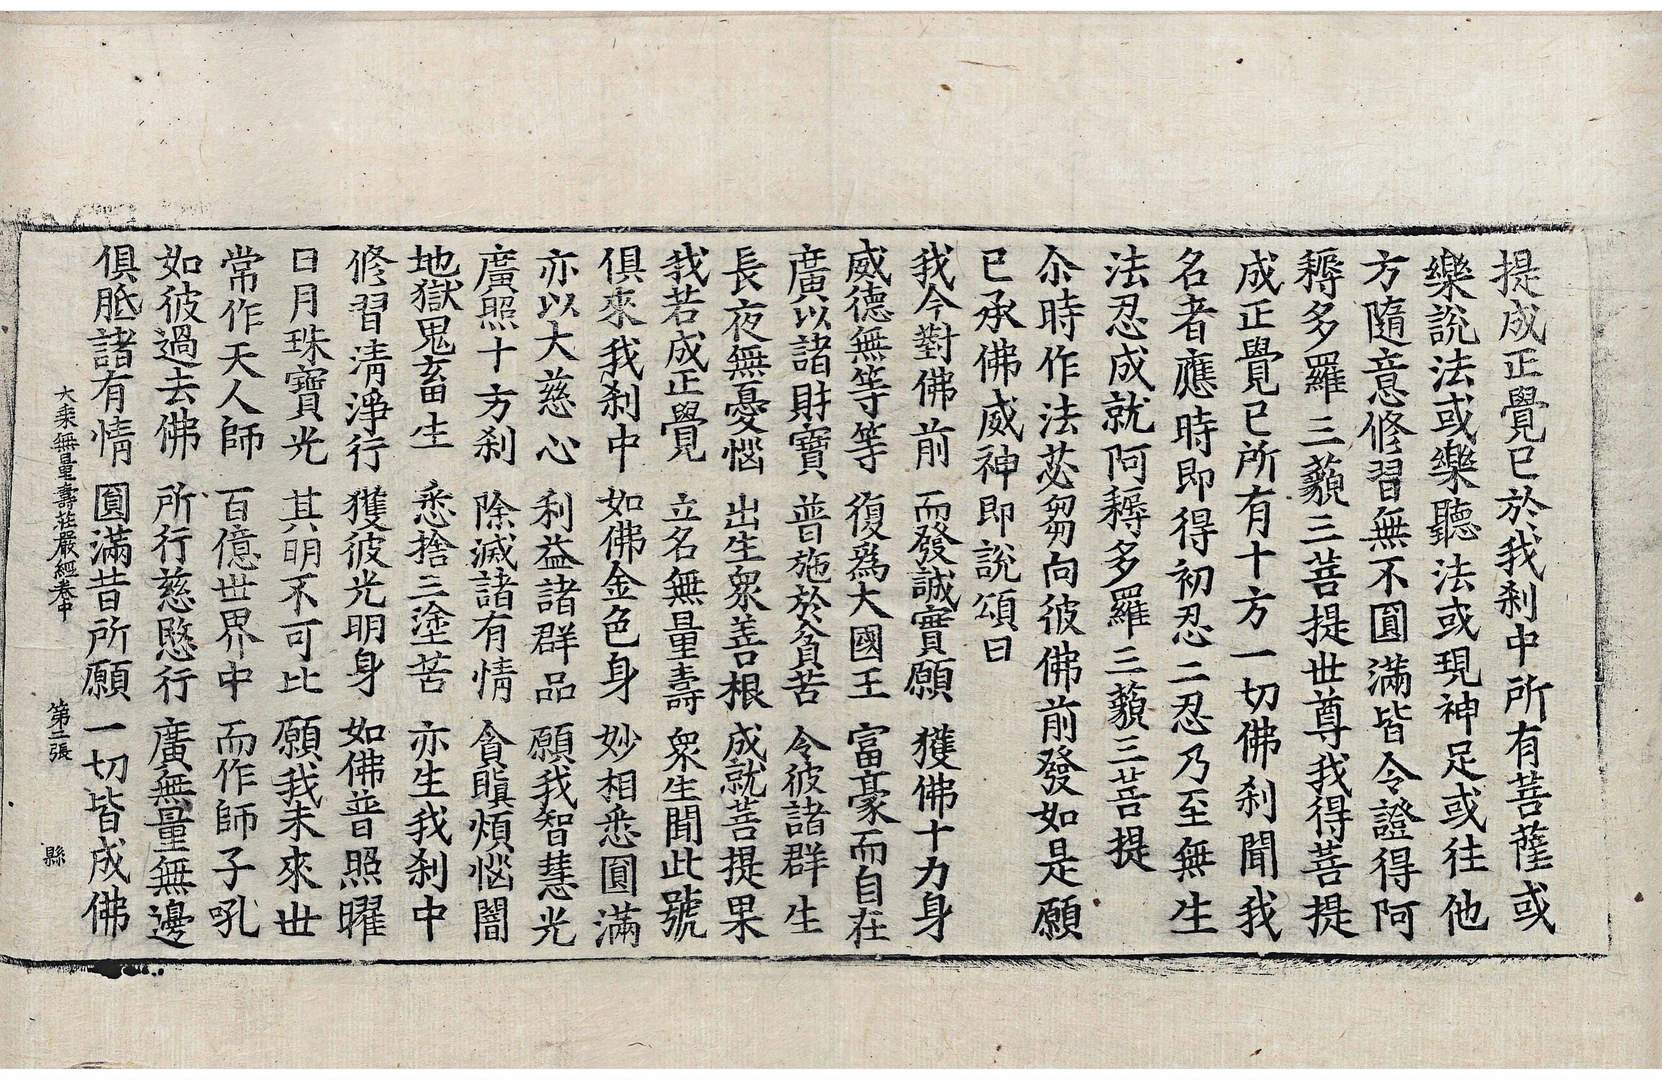 提成正覺已於我剎中所有菩薩或
樂說法或樂聽法或現神足或往他
方隨意修習無不圓滿皆令證得阿
耨多羅三藐三菩提世尊我得菩提
成正覺已所有十方一切佛剎聞我
名者應時即得初忍二忍乃至無生
法忍成就阿耨多羅三藐三菩提
尒時作法苾芻向彼佛前發如是願
已承佛威神即說頌曰
我今對佛前 而發誠實願 獲佛十力身
威德無等等 復爲大國王 富豪而自在
廣以諸財寶 普施於貧苦 令彼諸群生
長夜無憂惱 出生衆善根 成就菩提果
我若成正覺 立名無量壽 衆生聞此號
俱來我剎中 如佛金色身 妙相悉圓滿
亦以大慈心 利益諸群品 願我智慧光
廣照十方剎 除滅諸有情 貪瞋煩惱闇
地獄鬼畜生 悉捨三塗苦 亦生我剎中
修習清淨行 獲彼光明身 如佛普照曜
日月珠寶光 其明不可比 願我未來世
常作天人師 百億世界中 而作師子吼
如彼過去佛 所行慈愍行 廣無量無邊
俱胝諸有情 圓滿昔所願 一切皆成佛
大乘無量壽莊嚴經卷中 第二張 縣